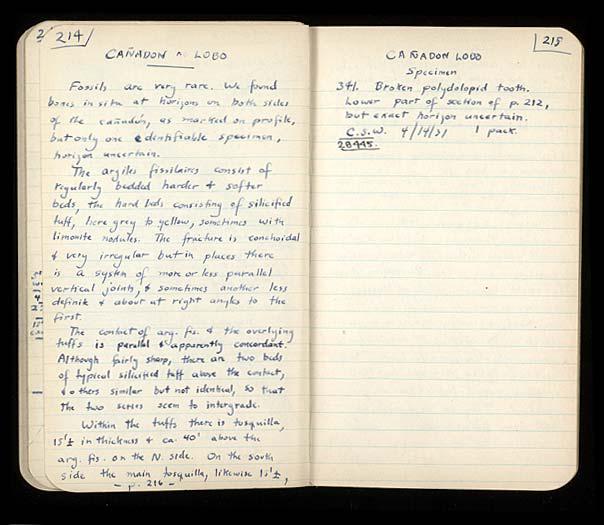 214
CAÑADON LOBO
Fossils are very rare. We found
bones in situ at horizons on both sides
of the cañadón, as marked on profile,
but only one identifiable specimen,
horizon uncertain.
The argiles fissilaires consist of
regularly bedded harder & softer
beds, the hard beds consisting of silicified
tuff, here grey to yellow, sometimes with
limonite nodules. The fracture is conchoidal
& very irregular but in places there
is a system of more or less parallel
vertical joints, & sometimes another less
definite & about at right angles to the
first.
The contact of arg. fis. & the overlying
tuffs is parallel & apparently concordant.
Although fairly sharp, there are two beds
of typical silicified tuff above the contact,
& others similar but not identical, so that
the two series seem to intergrade.
Within the tuffs there is tosquilla,
15'± in thickness & ca. 40' above the
arg. fis. on the N. side. On the south
side the main tosquilla, likewise 15'±,
- p. 216 -
215
CAÑADON LOBO
Specimen
341. Broken polydolopid tooth.
Lower part of section of p. 212,
but exact horizon uncertain.
C.S.W. 4/14/31 1 pack.
28445.